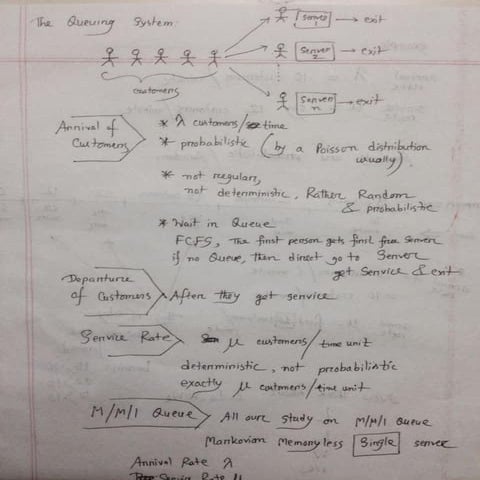 The Queuing System:
Server 1 → exit
Server 2 → exit
Server n → exit
customers
Arrival of Customers
* λ customers/time
* probabilistic (by a Poisson distribution usually)
* not regular,
not deterministic, Rather Random
& probabilistic
* Wait in Queue
FCFS, The first person gets first free server
if no Queue, then direct go to Server
get Service & exit
Departure of Customers
After they get service
Service Rate
μ customers/time unit
deterministic, not probabilistic
exactly μ customers/time unit
M/M/1 Queue
All our study on M/M/1 Queue
Markovian Memoryless Single server
Arrival Rate λ
Service Rate μ